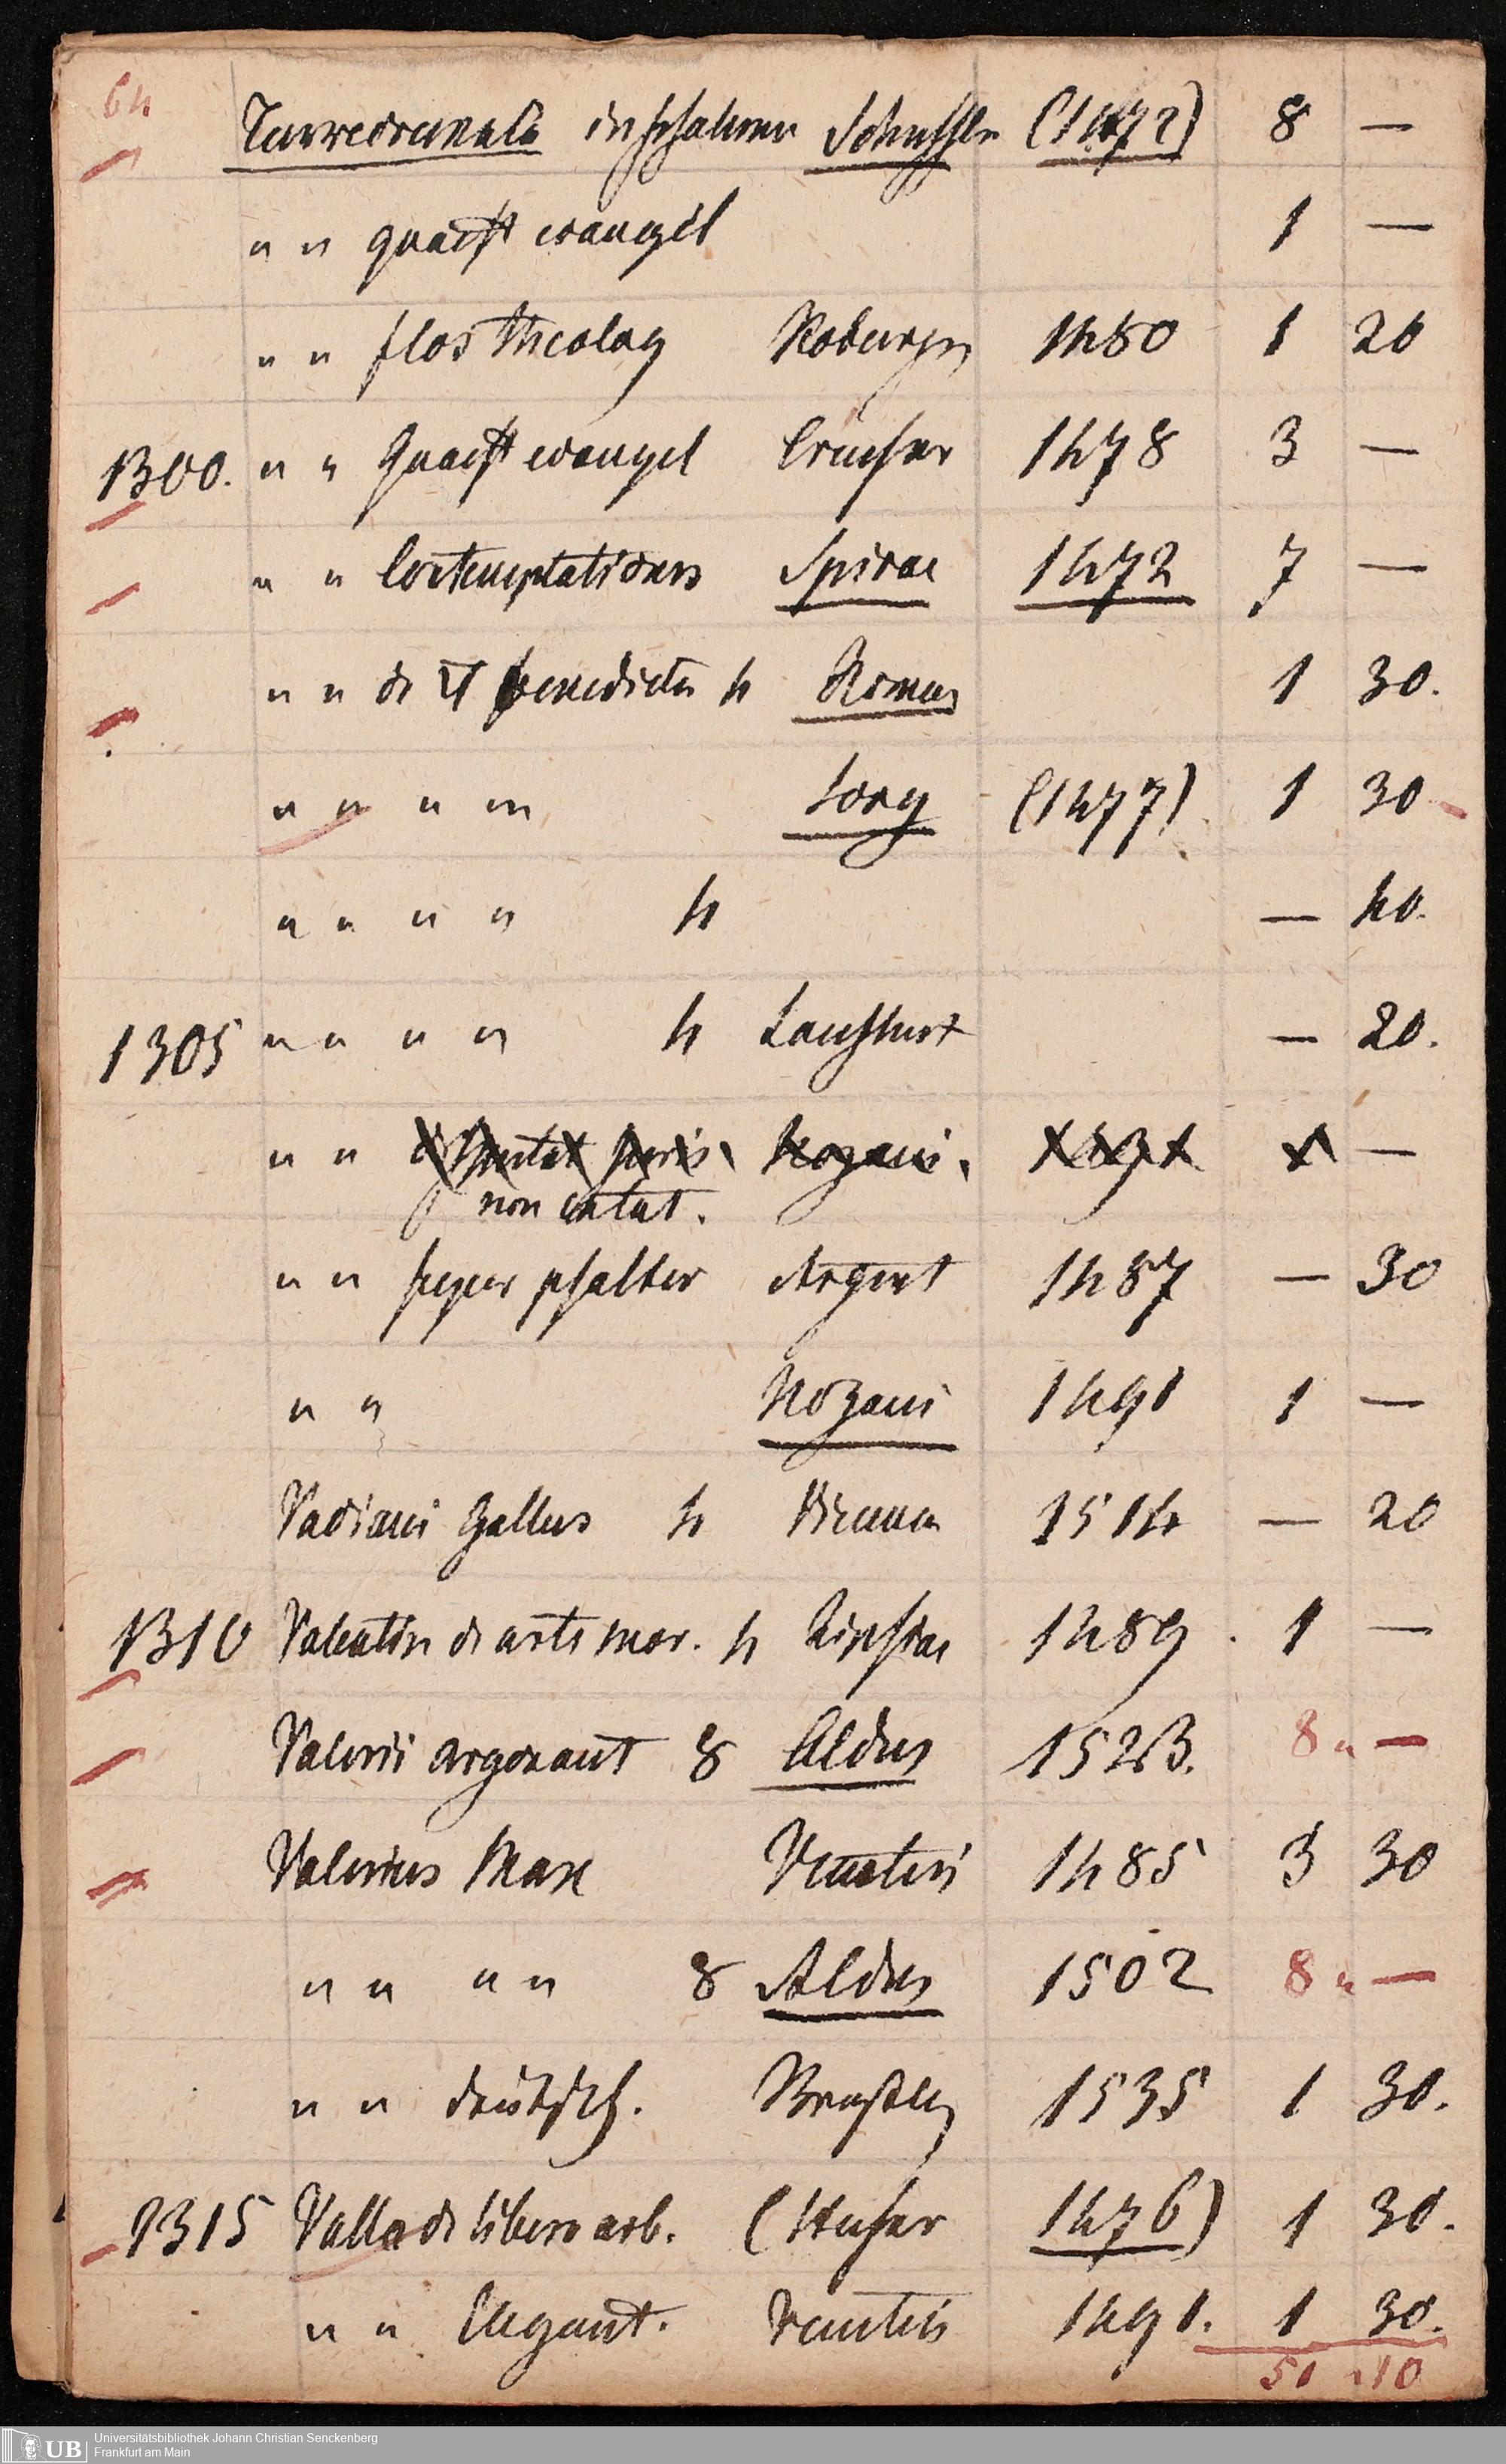 64
Turrecremata in psalmen Schussler (1472) 8 —
" " quaest evangel 1 —
" " flos theolog Koburger 1480 1 20
1300. " " Quaest evangel Creusner 1478 3 —
" " Contemplationes Spirae 1472 7 —
" " de benedicta 4 Romae 1 30.
" " " " Sorg (1477) 1 30
" " " " 4 — 40.
1305 " " " " 4 Landshut — 20.
" " —
non extat.
" " super psalter Argent 1487 — 30
" " Hozani 1491 1 —
Vadiani Gallus 4 Vienna 1514 — 20
1310 Valentin de arte mor. 4 Lipsiae 1489. 1 —
Valerii argonaut 8 Aldus 1523. 8 " —
Valerius Max Venetiis 1485 3 30
" " " " 8 Aldus 1502 8 " —
" " deutsch. 1535 1 30.
1315 Valla de libero arb. (Husner 1476) 1 30.
" " Elegant. Venetiis 1491. 1 30.
51 " 10
UB
Universitätsbibliothek Johann Christian Senckenberg
Frankfurt am Main